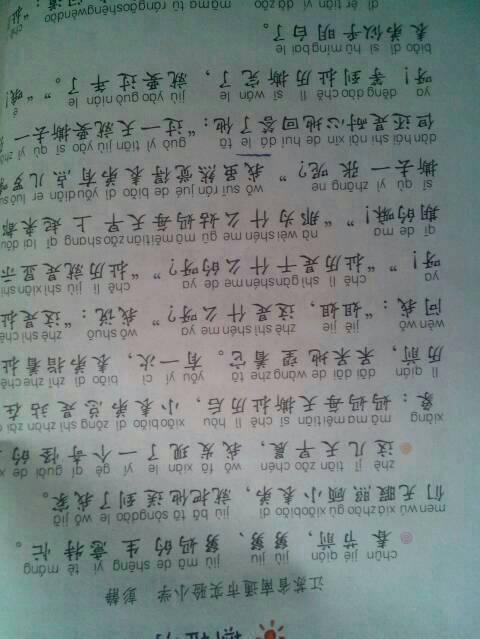 江苏省南通市实验小学 彭静
chūn jié qián jiù jiu jiù mā de shēng yì tè máng
春节前，舅舅、舅妈的生意特忙。
men wú xiá zhào gù xiǎo biǎo dì jiù bǎ tā sòng dào le wǒ jiā
们无暇照顾小表弟，就把他送到了我家。
zhè jǐ tiān zǎo chén wǒ fā xiàn le yí gè qí guài de
这几天早晨，我发现了一个奇怪的
xiàng mā ma měi tiān sī chě lì hòu xiǎo biǎo dì zǒng shì zhàn zài
象：妈妈每天撕扯历后，小表弟总是站在
lì qián dāi dāi de wàng zhe tā yǒu yí cì biǎo dì zhǐ zhe chě
历前，呆呆地望着它。有一次，表弟指着扯
wèn wǒ jiě jie zhè shì shén me ya wǒ shuō zhè shì chě
问我：“姐姐，这是什么呀？”我说：“这是扯
ya chě lì shì gàn shén me de ya chě lì jiù shì xiǎn shì
呀！”“扯历是干什么的呀？”“扯历就是显示
qī de ma nà wèi shén me gū mā měi tiān zǎo shang qǐ lai dōu
期的嘛！”“那为什么姑妈每天早上起来都
sī qù yì zhāng ne wǒ suī rán jué de biǎo dì yǒu diǎn er luō suo
撕去一张呢？”我虽然觉得表弟有点儿啰嗦
dàn hái shi nài xīn de huí dá le tā guò yì tiān jiù yào sī qù yì
但还是耐心地回答了他：“过一天就要撕去一
ya děng dào chě lì sī wán le jiù yào guò nián le
呀！等到扯历撕完了，就要过年了。”“哦！
biǎo dì sì hū míng bai le
表弟似乎明白了。